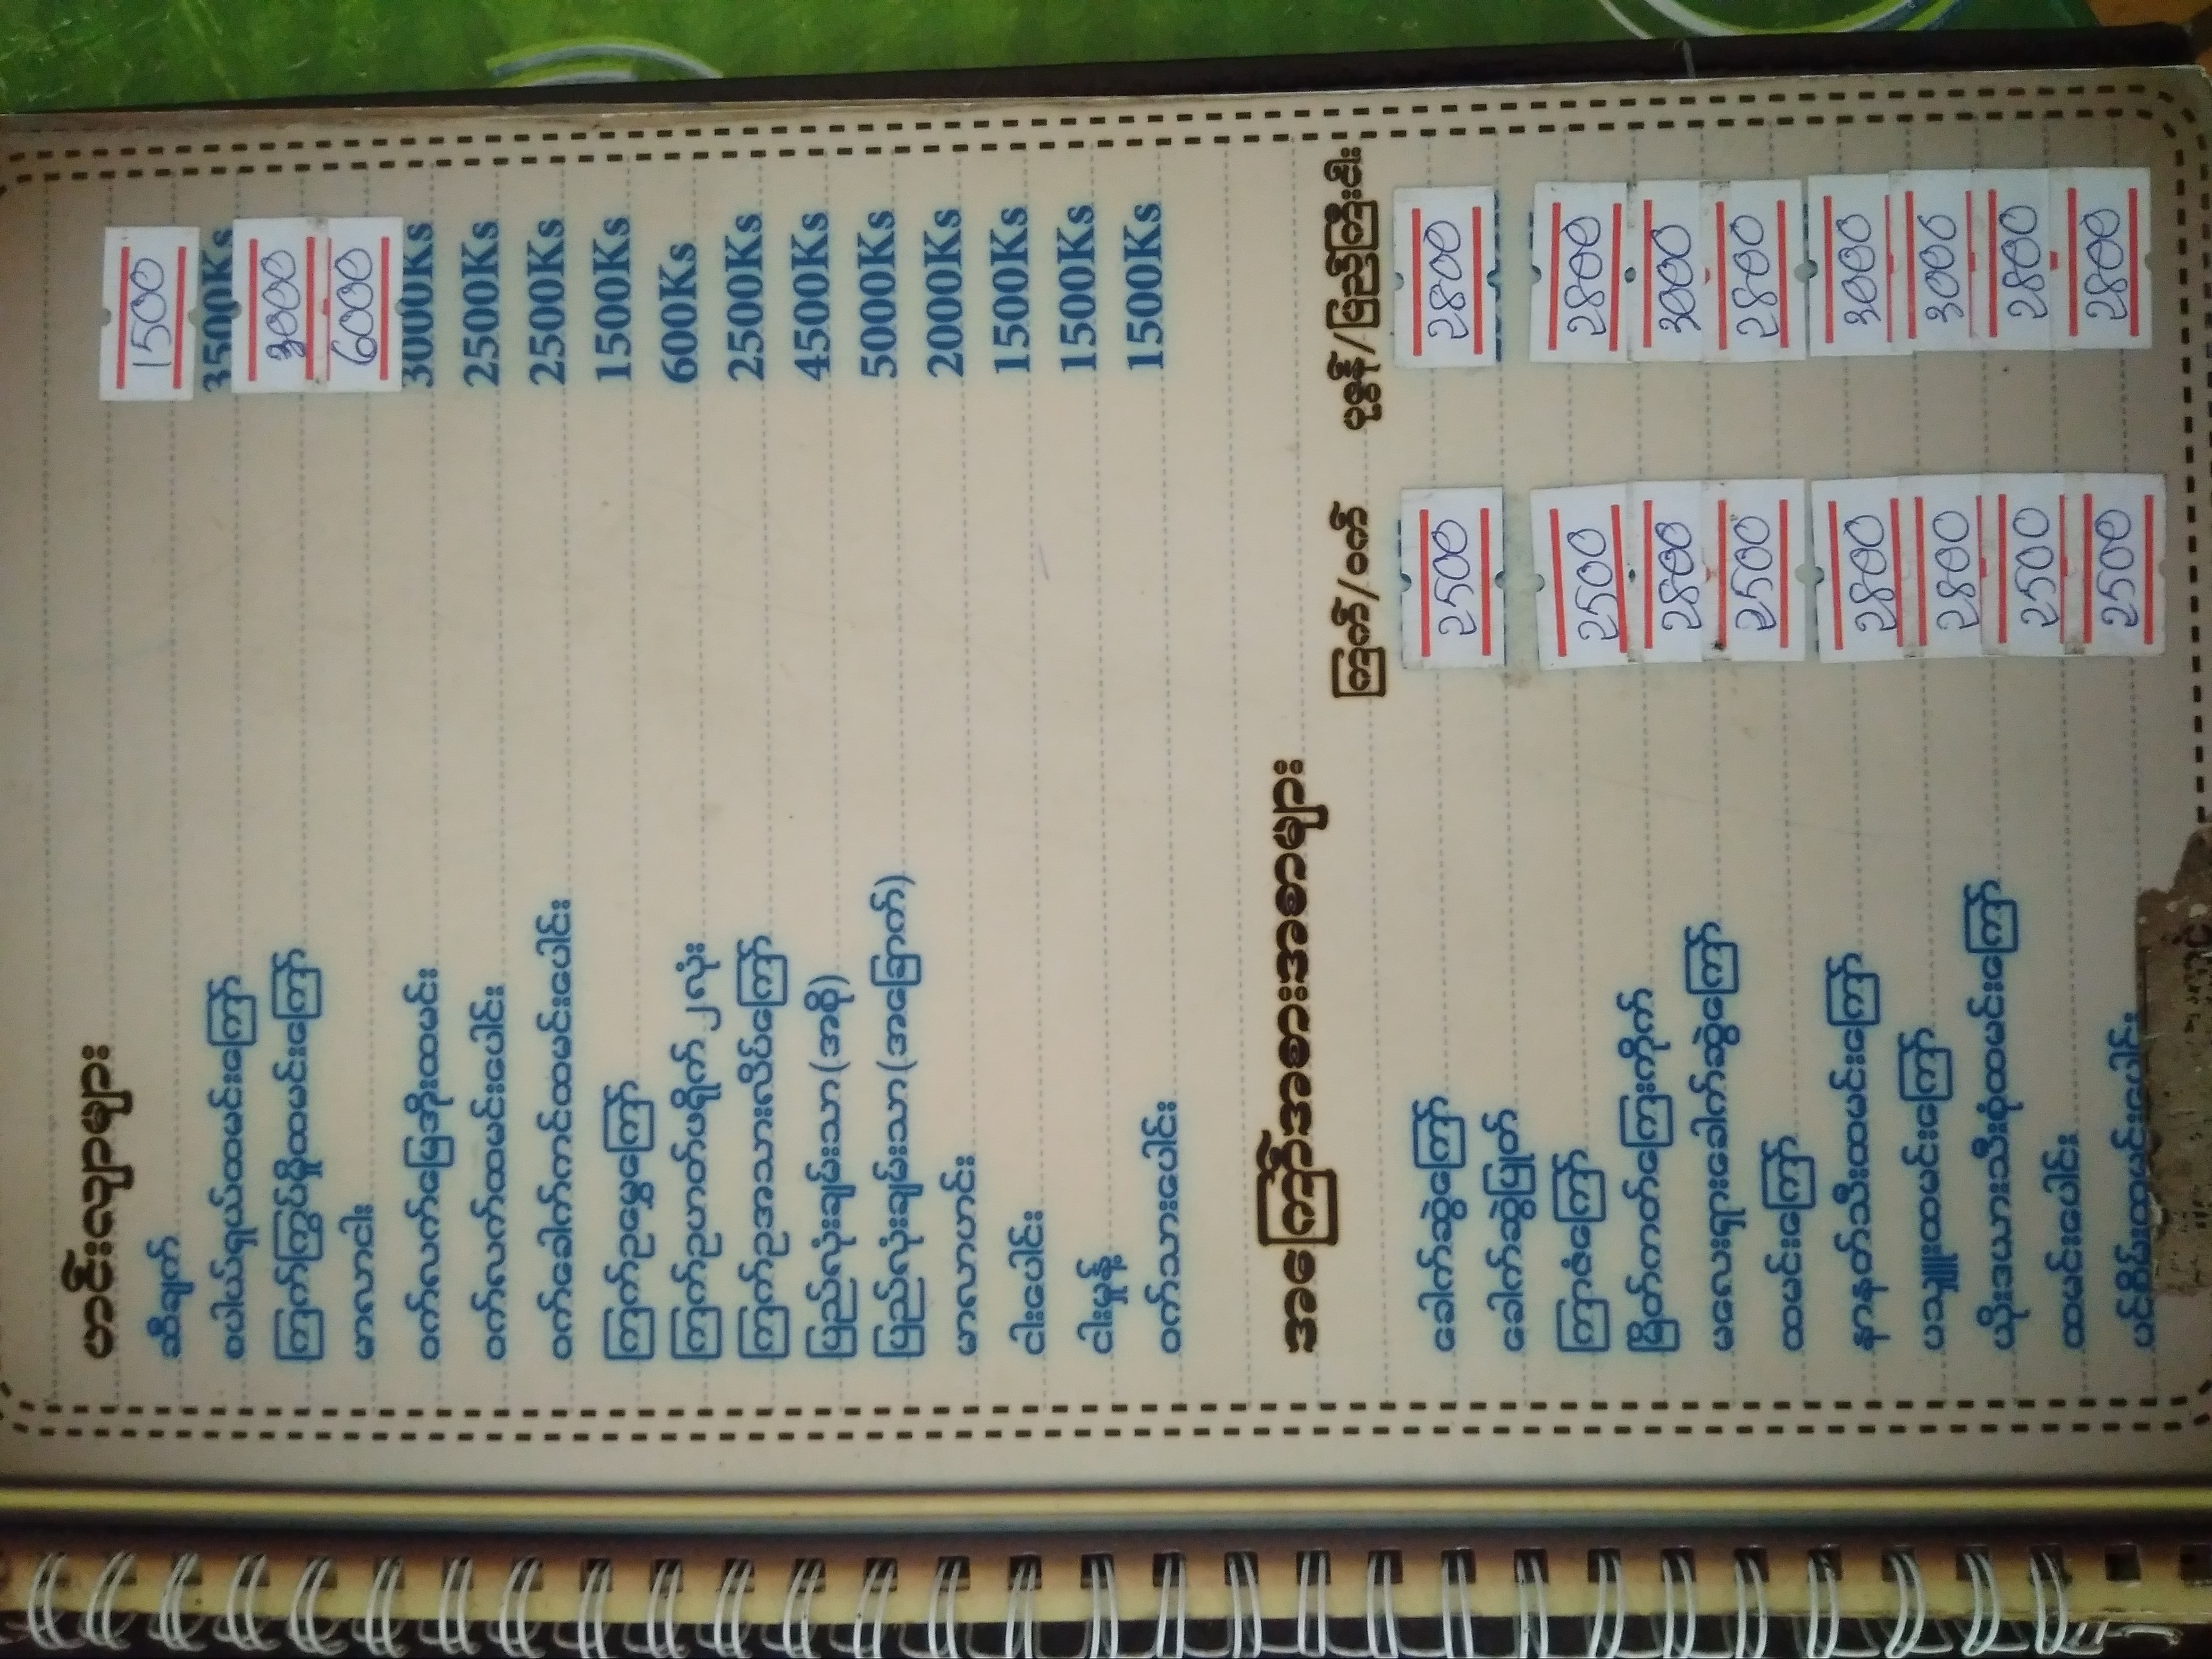 ဟင်းလျာများ
ဆီချက် 1500
စပါယ်ရှယ်ထမင်းကြော် 3500Ks
ကြက်ကြွပ်မှိုထမင်းကြော် 3000
မာလာငါး 6000
ဝက်လက်မြေအိုးထမင်း 3000Ks
ဝက်လက်ထမင်းပေါင်း 2500Ks
ဝက်ခေါက်ကင်ထမင်းပေါင်း 2500Ks
ကြက်ဥမွှေကြော် 1500Ks
ကြက်ဥဟာတ်ဖရိုက် ၂လုံး 600Ks
ကြက်ဥအသားလိပ်ကြော် 2500Ks
ပြည်လုံးချမ်းသာ (အစို) 4500Ks
ပြည်လုံးချမ်းသာ (အခြောက်) 5000Ks
မာလာဟင်း 2000Ks
ငါးပေါင်း 1500Ks
ငါးမွှန့် 1500Ks
ဝက်သားပေါင်း 1500Ks
အကြော်အစားအစာများ
ကြက်/ဝက် ပုစွန်/ပြည်ကြီးငါး
ခေါက်ဆွဲကြော် 2500 2800
ခေါက်ဆွဲပြုတ်
ကြာဇံကြော် 2500 2800
မြိတ်ကတ်ကြေးကိုက် 2800 3000
မလေးရှားခေါက်ဆွဲကြော် 2500 2800
ထမင်းကြော်
နာနတ်သီးထမင်းကြော် 2800 3000
မသျှူးထမင်းကြော် 2800 3000
ယိုးဒယားသီးစုံထမင်းကြော် 2500 2800
ထမင်းပေါင်း 2500 2800